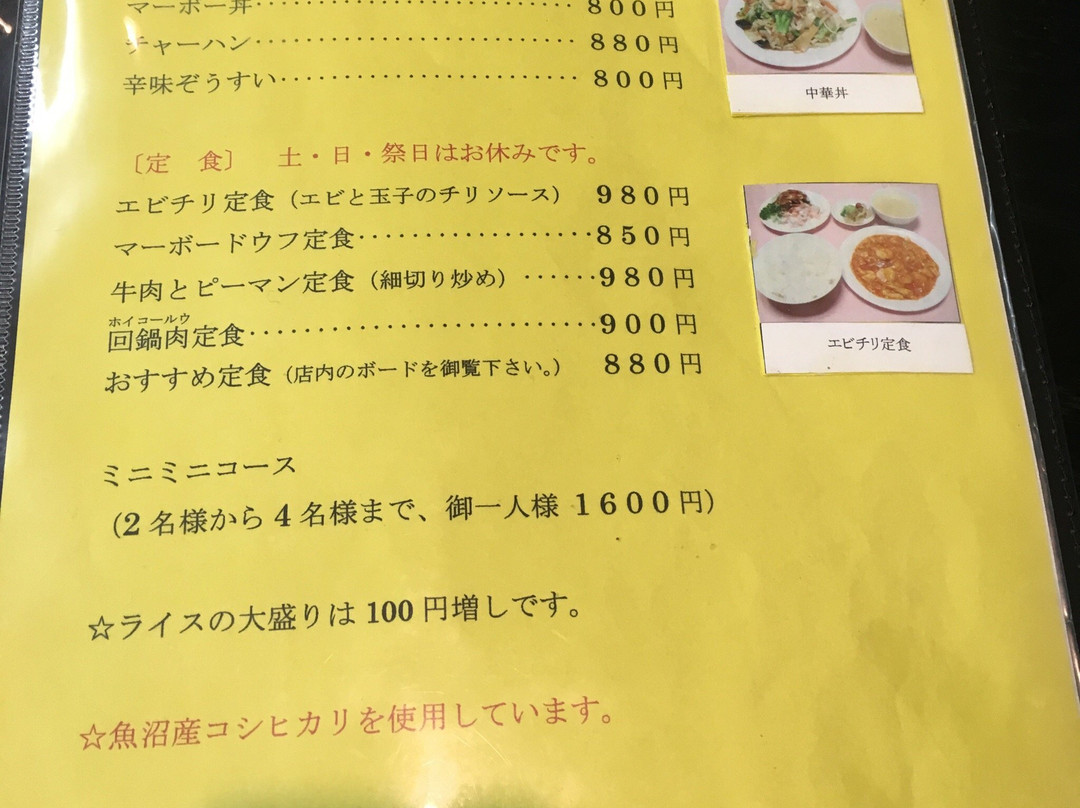 マーボー丼‥‥‥‥‥‥‥‥‥‥８００円
チャーハン‥‥‥‥‥‥‥‥‥‥８８０円
辛味ぞうすい‥‥‥‥‥‥‥‥‥８００円
中華丼
〔定　食〕　土・日・祭日はお休みです。
エビチリ定食（エビと玉子のチリソース）　９８０円
マーボードウフ定食‥‥‥‥‥‥‥８５０円
牛肉とピーマン定食（細切り炒め）‥‥９８０円
ホイコールウ
回鍋肉定食‥‥‥‥‥‥‥‥‥‥９００円
おすすめ定食（店内のボードを御覧下さい。）　８８０円
エビチリ定食
ミニミニコース
（2 名様から 4 名様まで、御一人様 １６００円）
☆ライスの大盛りは 100 円増しです。
☆魚沼産コシヒカリを使用しています。